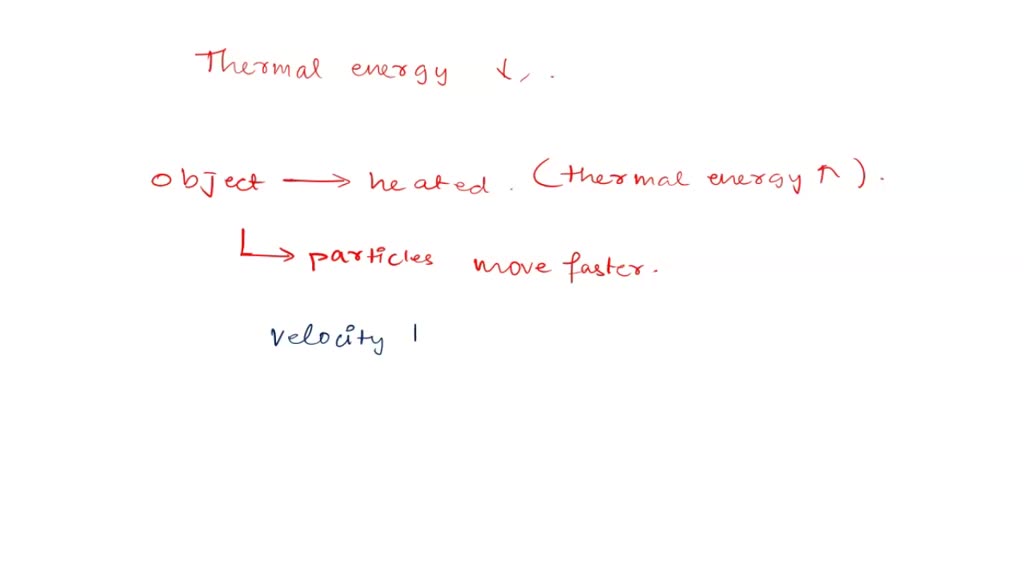 Thermal energy ↓, .
object → heated . (thermal energy ↑) .
↳ particles move faster.
velocity |